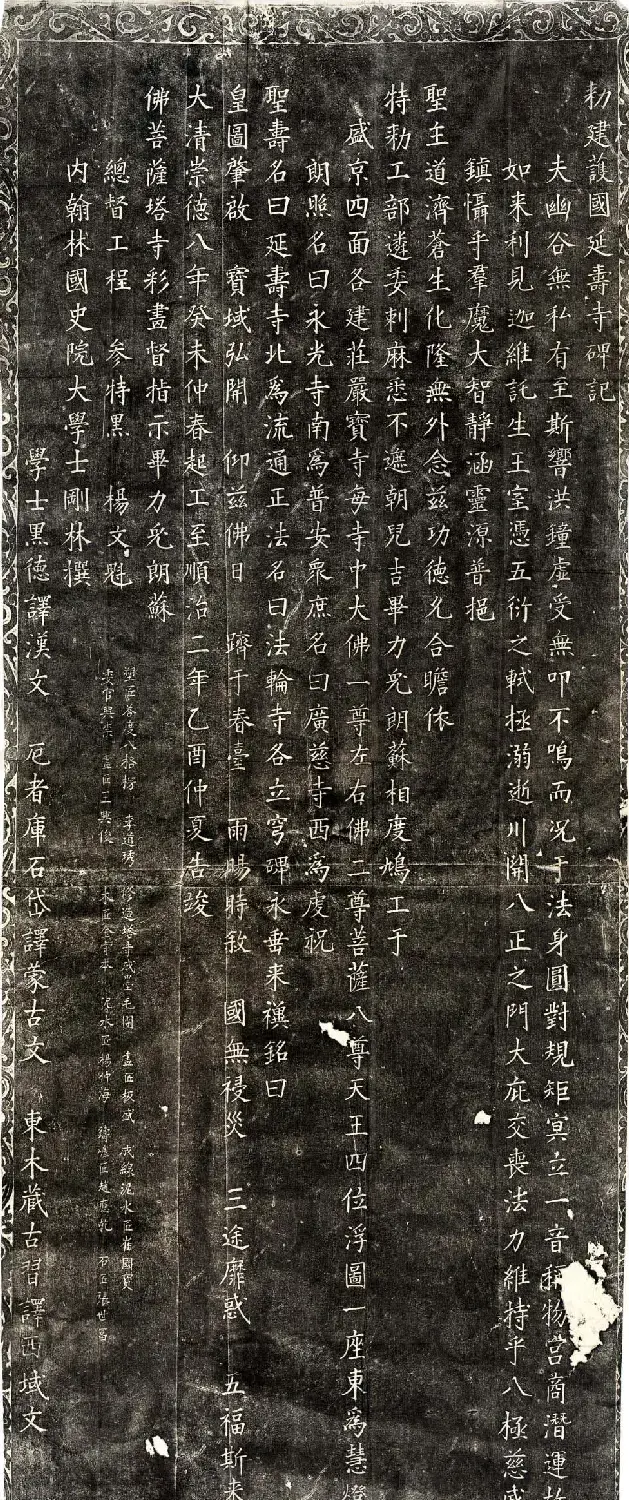 勅建護國延壽寺碑記
夫幽谷無私有至斯響洪鐘虛受無叩不鳴而況于法身圓對規矩冥立一音稱物宮商潛運
如来利見迦維託生王室憑五衍之軾拯溺逝川開八正之門大庇交喪法力維持乎八極慈
鎮懾乎羣魔大智靜涵靈源普挹
聖主道濟蒼生化隆無外念茲功德允合瞻依
特勅工部遴委剌麻悉不遮朝兒吉畢力兎朗蘇相度鳩工于
盛京四面各建莊嚴寶寺每寺中大佛一尊左右佛二尊菩薩八尊天王四位浮圖一座東爲慧燈
朗照名曰永光寺南爲普安眾庶名曰廣慈寺西爲虔祝
聖壽名曰延壽寺北爲流通正法名曰法輪寺各立穹碑永垂来禩銘曰
皇圖肇啟 寶域弘開 仰茲佛日 躋于春臺 雨暘時敘 國無祲災 三途靡惑 五福斯来
大清崇德八年癸未仲春起工至順治二年乙酉仲夏告竣
佛菩薩塔寺彩畫督指示畢力兎朗蘇
總督工程 參特黑 楊文魁
塑匠 李 修造塔寺 畫匠 泥水匠崔國寶
畫匠王興俊 木匠 泥水匠楊 石匠張世
内翰林國史院大學士剛林撰
學士黑德譯漢文 厄者庫石岱譯蒙古文 東木藏古習譯西域文